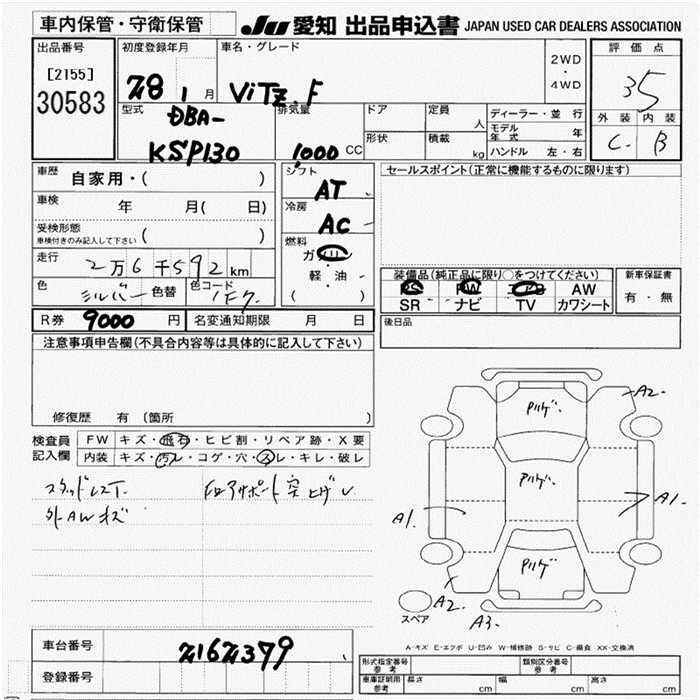 車内保管・守衛保管 JU 愛知 出品申込書 JAPAN USED CAR DEALERS ASSOCIATION
出品番号 初度登録年月 車名・グレード 2WD・4WD 評価点
[2155] 30583 28 1月 ViTZ F 35
型式 DBA-KSP130 排気量 1,000 CC ドア 定員 人 ディーラー・並行 外装 内装
形状 積載 kg モデル年式 年 C B
ハンドル 左・右
車歴 自家用・( ) シフト AT セールスポイント(正常に機能するものに限ります)
車検 年 月( 日) 冷房 AC
受検形態 車検付きのみ記入して下さい ( )
燃料 ガソリン・軽油・( )
走行 2万6千592km
色 シルバー 色替 色コード 1F7 装備品(純正品に限り○をつけてください) 新車保証書
PS PW AW 有・無
SR ナビ TV カワシート
R券 9000円 名変通知期限 月 日 後日品
注意事項申告欄(不具合内容等は具体的に記入して下さい)
修復歴 有 (箇所 )
検査員記入欄 FW キズ・飛石・ヒビ割・リペア跡・X要
内装 キズ・汚レ・コゲ・穴・スレ・キレ・破レ
スタッドレスT.
外AWキズ
A2
A1
A1
A2
A3
スペア
A-キズ E-エクボ U-凹み W-補修跡 S-サビ C-腐食 XX-交換済
車台番号 2162379
登録番号
形式指定番号 参考 類別区分番号 参考
車庫証明用 参考 長さ cm 幅 cm 高さ cm